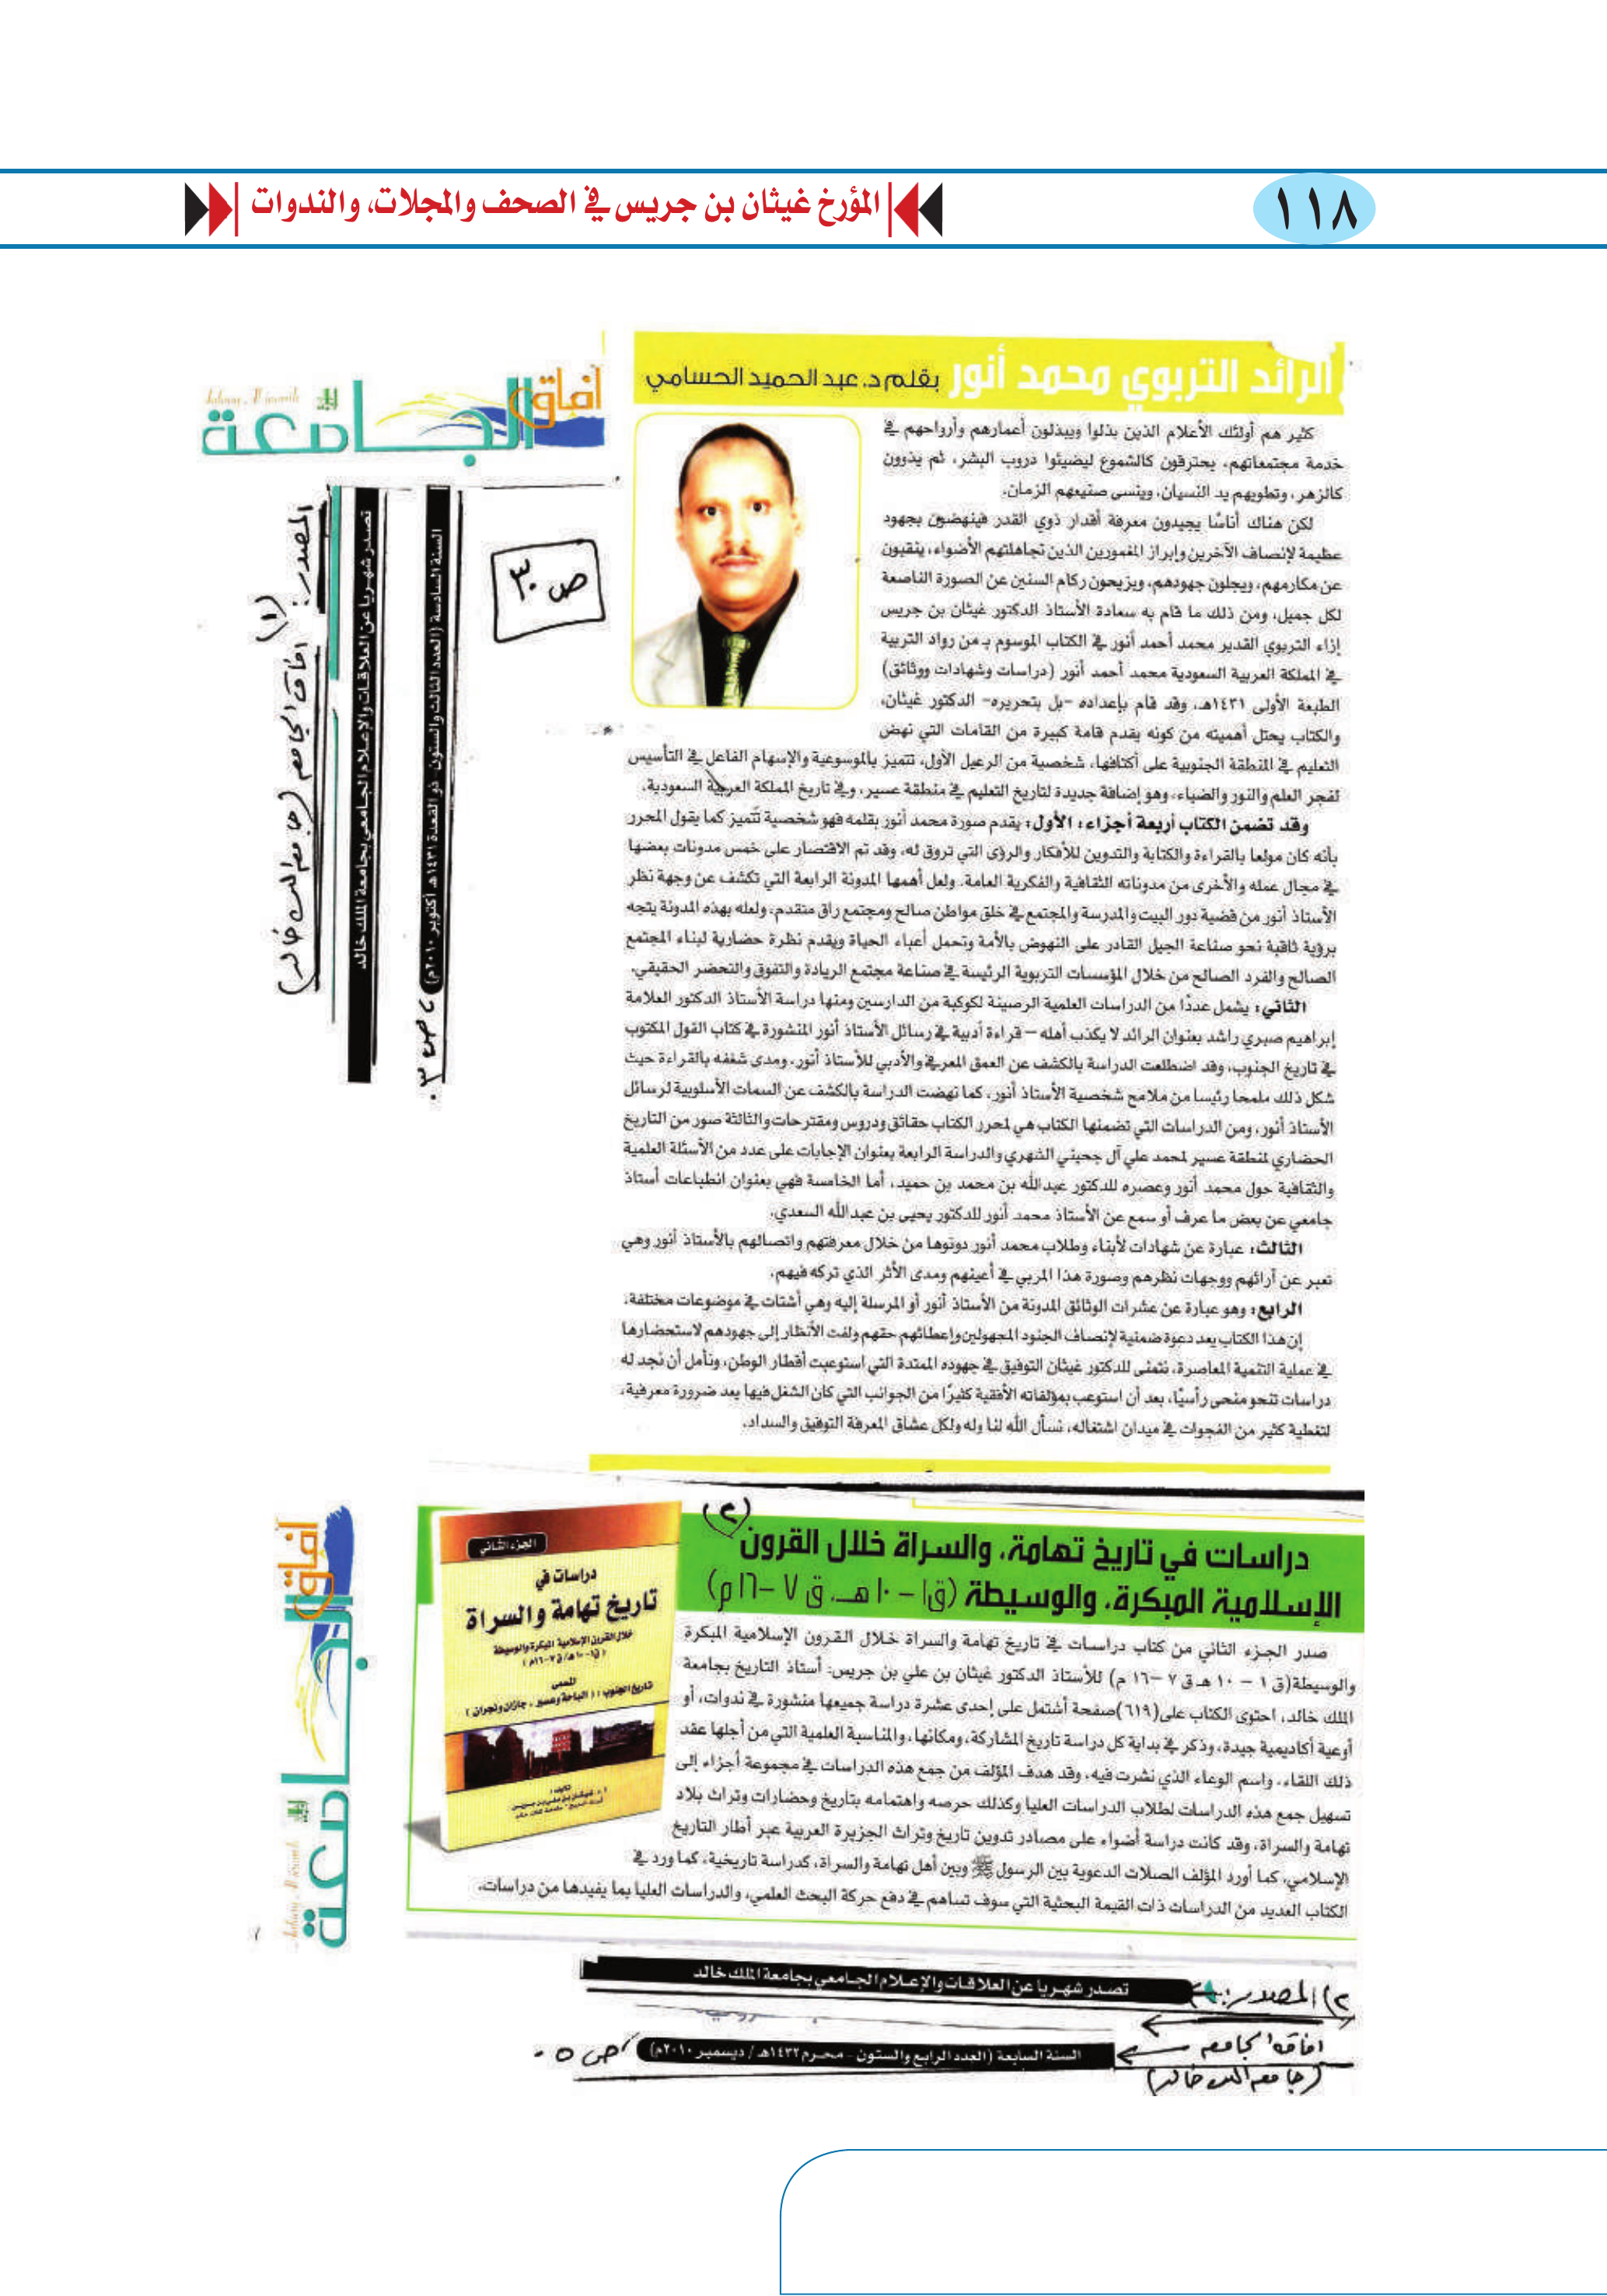 ١١٨
المؤرخ غيثان بن جريس في الصحف والمجلات، والندوات
الرائد التربوي محمد أنور بقلم د. عبد الحميد الحسامي
كثير هم أولئك الأعلام الذين بذلوا ويبذلون أعمارهم وأرواحهم في
خدمة مجتمعاتهم، يحترقون كالشموع ليضيئوا دروب البشر، ثم يذوون
كالزهر، وتطويهم يد النسيان، وينسى صنيعهم الزمان.
لكن هناك أناسًا يجيدون معرفة أقدار ذوي القدر فينهضون بجهود
عظيمة لإنصاف الآخرين وإبراز المغمورين الذين تجاهلتهم الأضواء، ينقبون
عن مكارمهم، ويجلون جهودهم، ويزيحون ركام السنين عن الصورة الناصعة
لكل جميل، ومن ذلك ما قام به سعادة الأستاذ الدكتور غيثان بن جريس
إزاء التربوي القدير محمد أحمد أنور في الكتاب الموسوم بـ من رواد التربية
في المملكة العربية السعودية محمد أحمد أنور (دراسات وشهادات ووثائق)
الطبعة الأولى ١٤٣١هـ، وقد قام بإعداده -بل بتحريره- الدكتور غيثان،
والكتاب يحتل أهميته من كونه يقدم قامة كبيرة من القامات التي نهض
التعليم في المنطقة الجنوبية على أكتافها، شخصية من الرعيل الأول، تتميز بالموسوعية والإسهام الفاعل في التأسيس
لفجر العلم والنور والضياء، وهو إضافة جديدة لتاريخ التعليم في منطقة عسير، وفي تاريخ المملكة العربية السعودية.
وقد تضمن الكتاب أربعة أجزاء: الأول: يقدم صورة محمد أنور بقلمه فهو شخصية تتميز كما يقول المحرر
بأنه كان مولعا بالقراءة والكتابة والتدوين للأفكار والرؤى التي تروق له، وقد تم الاقتصار على خمس مدونات بعضها
في مجال عمله والأخرى من مدوناته الثقافية والفكرية العامة. ولعل أهمها المدونة الرابعة التي تكشف عن وجهة نظر
الأستاذ أنور من قضية دور البيت والمدرسة والمجتمع في خلق مواطن صالح ومجتمع راق متقدم، ولعله بهذه المدونة يتجه
برؤية ثاقبة نحو صناعة الجيل القادر على النهوض بالأمة وتحمل أعباء الحياة ويقدم نظرة حضارية لبناء المجتمع
الصالح والفرد الصالح من خلال المؤسسات التربوية الرئيسة في صناعة مجتمع الريادة والتفوق والتحضر الحقيقي.
الثاني: يشمل عددًا من الدراسات العلمية الرصينة لكوكبة من الدارسين ومنها دراسة الأستاذ الدكتور العلامة
إبراهيم صبري راشد بعنوان الرائد لا يكذب أهله – قراءة أدبية في رسائل الأستاذ أنور المنشورة في كتاب القول المكتوب
في تاريخ الجنوب، وقد اضطلعت الدراسة بالكشف عن العمق المعرفي والأدبي للأستاذ أنور، ومدى شغفه بالقراءة حيث
شكل ذلك ملمحا رئيسا من ملامح شخصية الأستاذ أنور، كما نهضت الدراسة بالكشف عن السمات الأسلوبية لرسائل
الأستاذ أنور، ومن الدراسات التي تضمنها الكتاب هي لمحرر الكتاب حقائق ودروس ومقترحات والثالثة صور من التاريخ
الحضاري لمنطقة عسير لمحمد علي آل جحيني الشهري والدراسة الرابعة بعنوان الإجابات على عدد من الأسئلة العلمية
والثقافية حول محمد أنور وعصره للدكتور عبدالله بن محمد بن حميد، أما الخامسة فهي بعنوان انطباعات أستاذ
جامعي عن بعض ما عرف أو سمع عن الأستاذ محمد أنور للدكتور يحيى بن عبدالله السعدي.
الثالث: عبارة عن شهادات لأبناء وطلاب محمد أنور دونوها من خلال معرفتهم واتصالهم بالأستاذ أنور وهي
تعبر عن آرائهم ووجهات نظرهم وصورة هذا المربي في أعينهم ومدى الأثر الذي تركه فيهم.
الرابع: وهو عبارة عن عشرات الوثائق المدونة من الأستاذ أنور أو المرسلة إليه وهي أشتات في موضوعات مختلفة.
إن هذا الكتاب يعد دعوة ضمنية لإنصاف الجنود المجهولين وإعطائهم حقهم ولفت الأنظار إلى جهودهم لاستحضارها
في عملية التنمية المعاصرة، نتمنى للدكتور غيثان التوفيق في جهوده الممتدة التي استوعبت أقطار الوطن، ونأمل أن نجد له
دراسات تنحو منحى رأسيًا، بعد أن استوعب بمؤلفاته الأفقية كثيرًا من الجوانب التي كان الشغل فيها يعد ضرورة معرفية،
لتغطية كثير من الفجوات في ميدان اشتغاله، نسأل الله لنا وله ولكل عشاق المعرفة التوفيق والسداد.
آفاق الجامعة
ص ٣٠
المصدر:
(١)
آفاق الجامعة (جامعة الملك خالد)
تصدر شهريا عن العلاقات والإعلام الجامعي بجامعة الملك خالد
السنة السادسة (العدد الثالث والستون - ذو القعدة ١٤٣١هـ أكتوبر ٢٠١٠م) ، ص ٣٠
(٢)
دراسات في تاريخ تهامة، والسراة خلال القرون
الإسلامية المبكرة، والوسيطة (ق١ – ١٠هـ، ق ٧ –١٦م)
صدر الجزء الثاني من كتاب دراسات في تاريخ تهامة والسراة خلال القرون الإسلامية المبكرة
والوسيطة(ق ١ – ١٠ هـ ق ٧ –١٦ م) للأستاذ الدكتور غيثان بن علي بن جريس: أستاذ التاريخ بجامعة
الملك خالد، احتوى الكتاب على(٦١٩)صفحة أشتمل على إحدى عشرة دراسة جميعها منشورة في ندوات، أو
أوعية أكاديمية جيدة، وذكر في بداية كل دراسة تاريخ المشاركة، ومكانها، والمناسبة العلمية التي من أجلها عقد
ذلك اللقاء، واسم الوعاء الذي نشرت فيه، وقد هدف المؤلف من جمع هذه الدراسات في مجموعة أجزاء إلى
تسهيل جمع هذه الدراسات لطلاب الدراسات العليا وكذلك حرصه واهتمامه بتاريخ وحضارات وتراث بلاد
تهامة والسراة، وقد كانت دراسة أضواء على مصادر تدوين تاريخ وتراث الجزيرة العربية عبر أطار التاريخ
الإسلامي، كما أورد المؤلف الصلات الدعوية بين الرسول ﷺ وبين أهل تهامة والسراة، كدراسة تاريخية، كما ورد في
الكتاب العديد من الدراسات ذات القيمة البحثية التي سوف تساهم في دفع حركة البحث العلمي، والدراسات العليا بما يفيدها من دراسات.
الجزء الثاني
دراسات في
تاريخ تهامة والسراة
خلال القرون الإسلامية المبكرة والوسيطة
(ق١-١٠هـ/ق٧-١٦م)
المسمى
تاريخ الجنوب: (الباحة وعسير، جازان ونجران)
آفاق الجامعة
٢) المصدر:
تصدر شهريا عن العلاقات والإعلام الجامعي بجامعة الملك خالد
آفاق الجامعة
السنة السابعة (العدد الرابع والستون - محرم ١٤٣٢هـ / ديسمبر ٢٠١٠م) ، ص ٥٠
(جامعة الملك خالد)